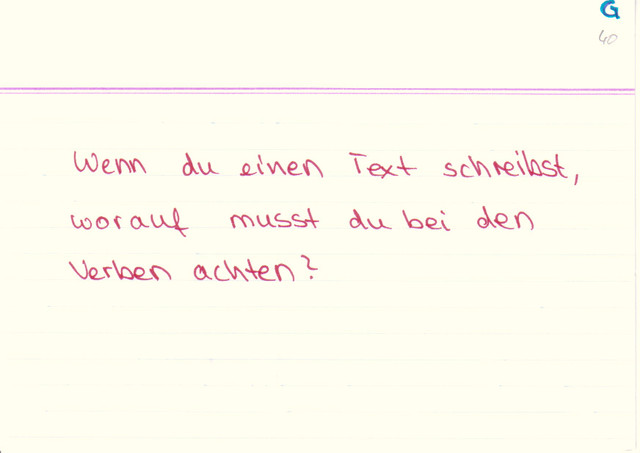 G
40
Wenn du einen Text schreibst,
worauf musst du bei den
Verben achten?